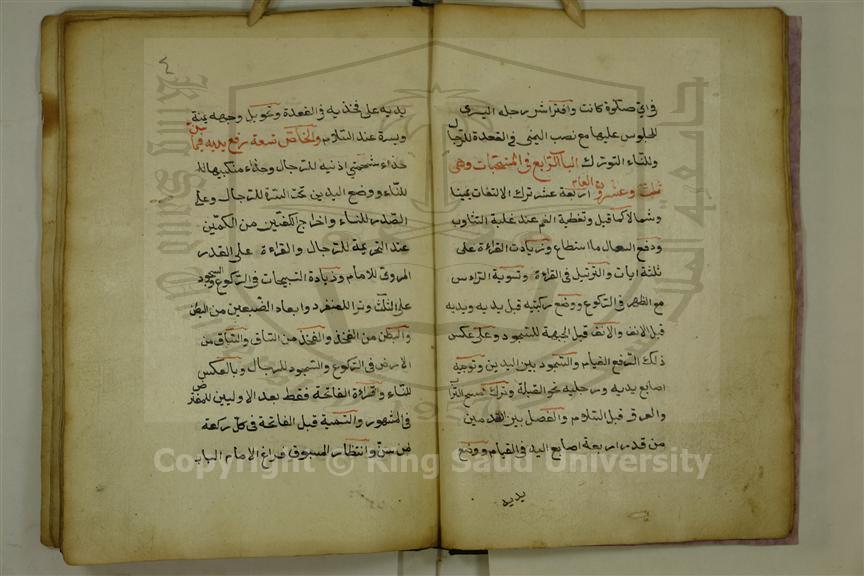 في اي صلوة كانت وافتراش رجله اليسرى
للجلوس عليها مع نصب اليمنى في القعدة للرجال
وللنساء التورك الباب الرابع في المستحبات وهي
ثلث وعشرون العام اربعة عشر ترك الالتفات يمينا
وشمالا كما قيل وتغطية الفم عند غلبة التثاوب
ودفع السعال ما استطاع وزيادت القراءة على
ثلثة ايات والترتيل في القراءة وتسوية الراس
مع الظهر في الركوع ووضع ركبتيه قبل يديه ويديه
قبل الانف والانف قبل الجبهة للسجود وعلى عكس
ذلك الرفع للقيام والسجود بين اليدين وتوجيه
اصابع يديه ورجليه نحو القبلة وترك مسح التراب
والعرق قبل السلام والفصل بين القدمين
من قدر اربعة اصابع اليد في القيام ووضع
يديه
٤
يديه على فخذيه في القعدة وتحويل وجهه يمنة
ويسرة عند السلام والخاص تسعة رفع يديه
حذاء شحمتي اذنيه للرجال وحذاء منكبيها لل
للنساء ووضع اليدين تحت السرة للرجال وعلى
الصدر للنساء واخراج الكفين من الكمين
عند التحريمة للرجال والقراءة على القدر
المروي للامام وزيادة التسبيحات في الركوع والسجود
على الثلث وترا للمنفرد وابعاد الضبعين من البطن
والبطن من الفخذ والفخذ من الساق والساق من
الارض في الركوع والسجود للرجال وبالعكس
للنساء وقراءة الفاتحة فقط بعد الاوليين للمفترض
في المشهور والتسمية قبل الفاتحة في كل ركعة
وانتظار المسبوق فراغ الامام الباب
Copyright © King Saud University
جامعة الملك سعود
King Saud University
1957